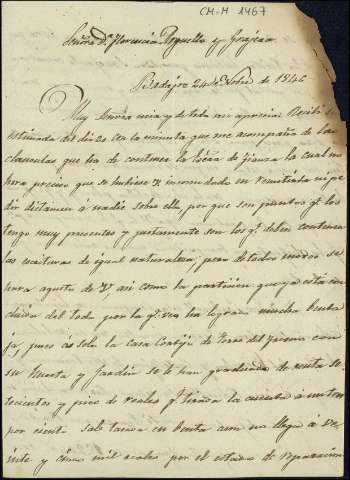 CM-M 1467
Señora Dª. Florencia y
Badajoz 24 de 1846
Muy Señora mia y de toda mi apreciacion: Recibí su
estimada del dia 20 con la minuta que me acompaña de las
clausulas que ha de contener la de fianza la cual no
hera preciso que se hubiese V. incomodado en remitirla ni pe
dir dictamen á nadie sobre ella, por que son puntos qe. los
tengo muy presentes y justamente son los qe. deben contener
las escrituras de igual naturaleza, pero de todos modos se
hara á gusto de V, asi como la particion que ya está con
cluida del todo por la qe. ves ha logrado mucha benta
ja, pues de solo la Casa de
su Huerta y Jardin se le han graduado de renta se
tecientos y pico de reales qe. tirada la cuenta á un tres
por ciento sale tasada en benta aun no llega á ve
inte y cinco mil reales por el estado de reparacion